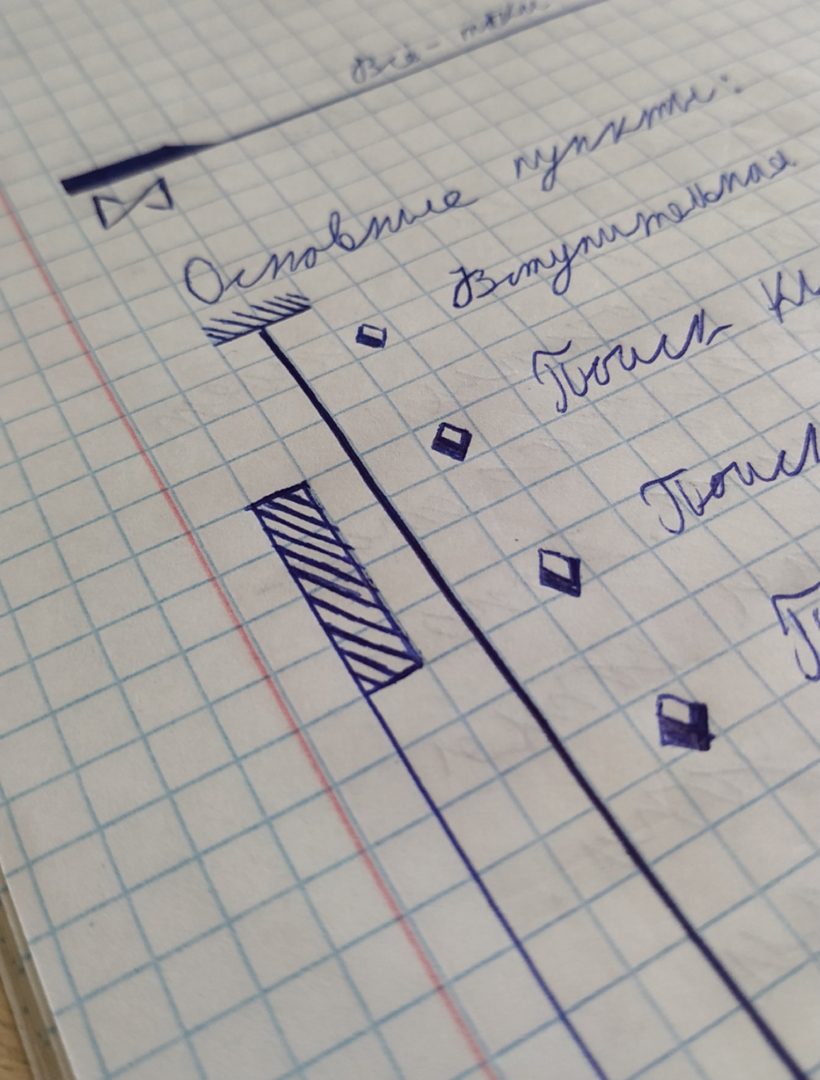 Всё-таки
Основные пункты:
Вступительная
Поиск
Поиск